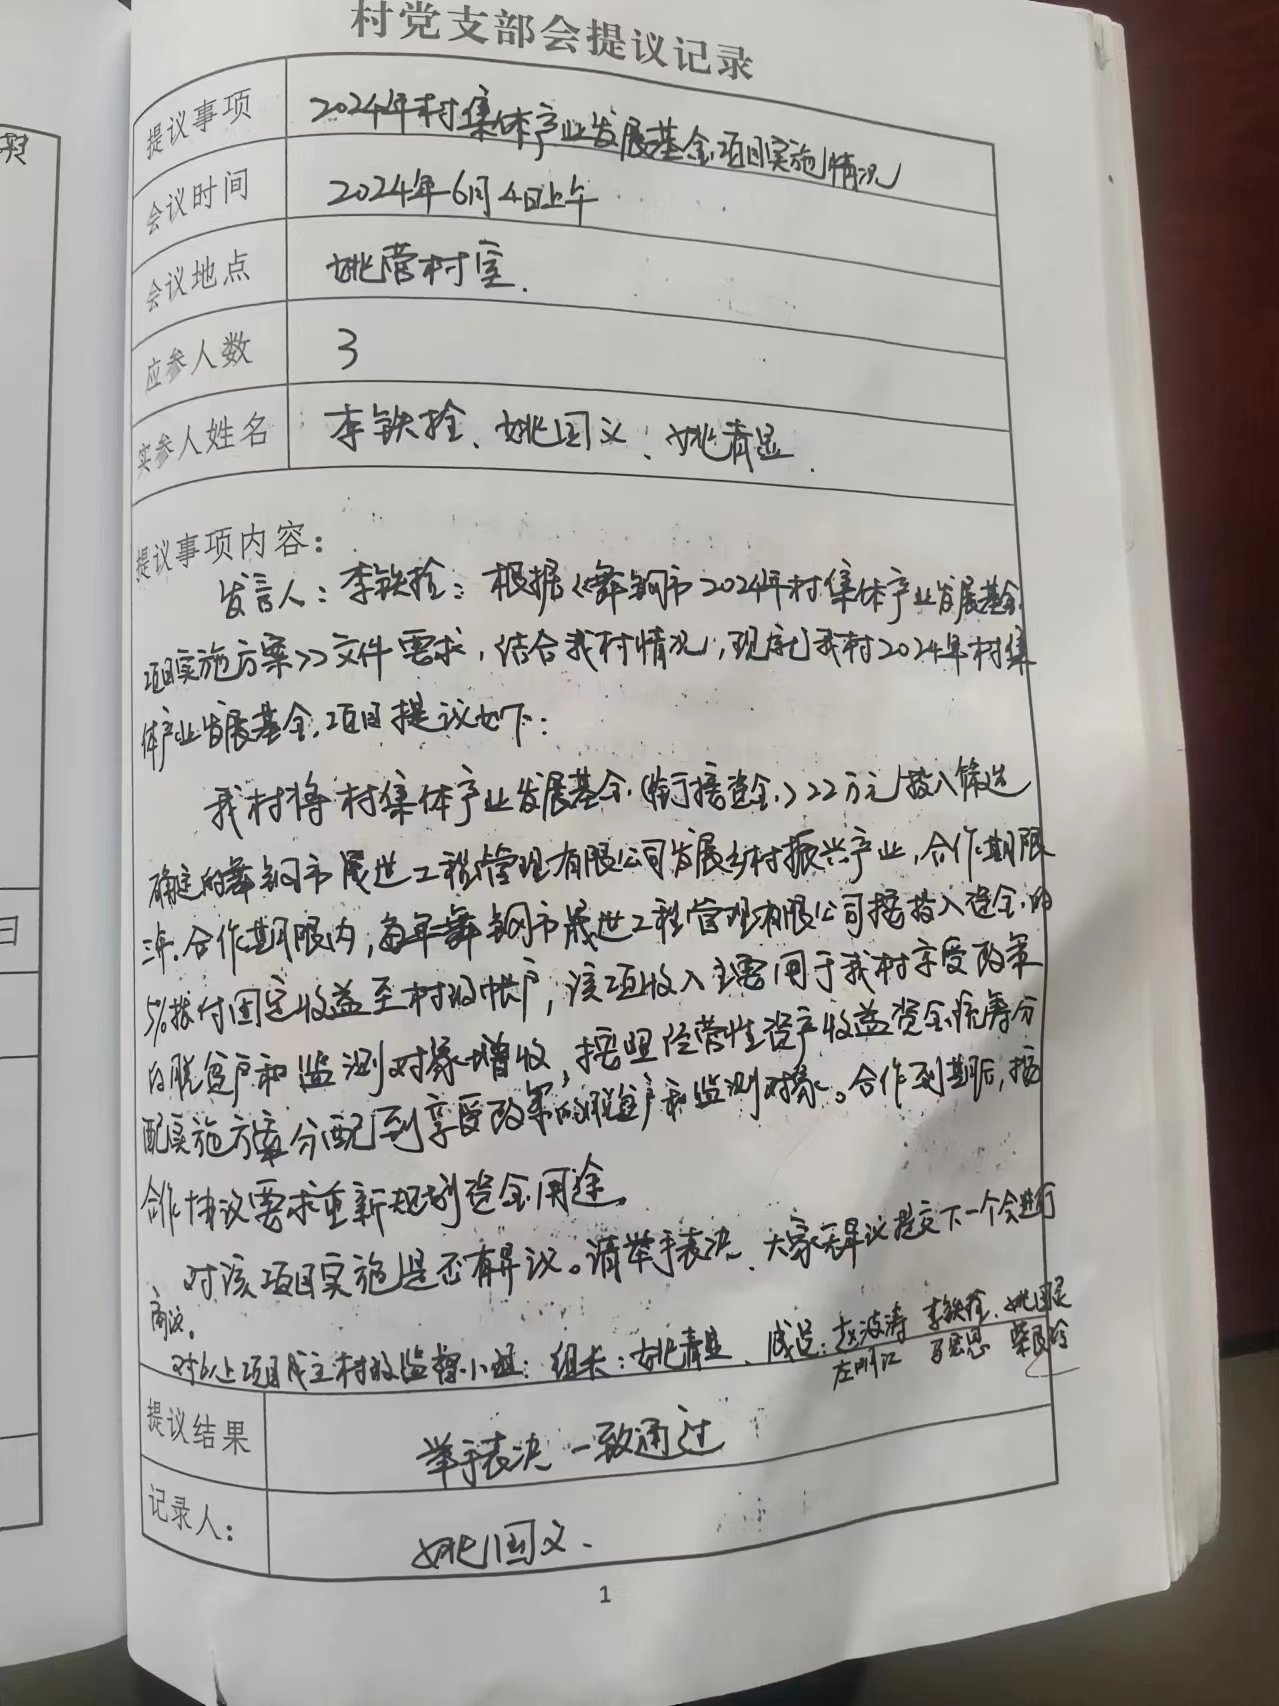 村党支部会提议记录
提议事项 2024年村集体产业发展基金项目实施情况
会议时间 2024年6月4日上午
会议地点 姚营村室.
应参人数 3
实参人姓名 李铁拴、姚国义、姚清显.
提议事项内容：
发言人：李铁拴：根据《舞钢市2024年村集体产业发展基金
项目实施方案》文件要求，结合我村情况，现就我村2024年村集
体产业发展基金项目提议如下：
我村将村集体产业发展基金（衔接资金）22万元投入筛选
确定的舞钢市晟世工程管理有限公司发展乡村振兴产业，合作期限
三年.合作期限内，每年舞钢市晟世工程管理有限公司按投入资金的
5%拨付固定收益至村级帐户，该项收入主要用于我村享受政策
的脱贫户和监测对象增收，按照经营性资产收益资金统筹分
配实施方案分配到享受政策的脱贫户和监测对象。合作到期后，按
合作协议要求重新规划资金用途。
对该项目实施是否有异议。请举手表决、大家无异议提交下一个会进行
商议。
对以上项目成立村级监督小组：组长：姚清显、成员：赵波涛 李铁拴、姚国义
左刚江
提议结果 举手表决 一致通过
记录人： 姚国义.
1
日